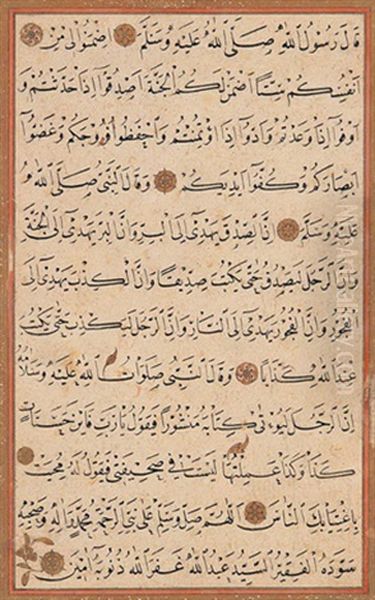 قَالَ رَسُولُ اللهِ صَلَّى اللهُ عَلَيْهِ وَسَلَّمَ اضْمَنُوا لِي مِنْ
اَنْفُسِكُمْ سِتًّا اَضْمَنْ لَكُمُ الْجَنَّةَ اُصْدُقُوا اِذَا حَدَّثْتُمْ وَ
اَوْفُوا اِذَا وَعَدْتُمْ وَاَدُّوا اِذَا اؤْتُمِنْتُمْ وَاحْفَظُوا فُرُوجَكُمْ وَغُضُّوا
اَبْصَارَكُمْ وَكُفُّوا اَيْدِيَكُمْ وَقَالَ النَّبِيُّ صَلَّى اللهُ
عَلَيْهِ وَسَلَّمَ اِنَّ الصِّدْقَ يَهْدِي اِلَى الْبِرِّ وَاِنَّ الْبِرَّ يَهْدِي اِلَى الْجَنَّةِ
وَاِنَّ الرَّجُلَ لَيَصْدُقُ حَتَّى يُكْتَبَ صِدِّيقًا وَاِنَّ الْكَذِبَ يَهْدِي اِلَى
الْفُجُورِ وَاِنَّ الْفُجُورَ يَهْدِي اِلَى النَّارِ وَاِنَّ الرَّجُلَ لَيَكْذِبُ حَتَّى يُكْتَبَ
عِنْدَ اللهِ كَذَّابًا وَقَالَ النَّبِيُّ صَلَوَاتُ اللهِ عَلَيْهِ وَسَلَامُهُ
اِنَّ الرَّجُلَ لَيُؤْتَى كِتَابَهُ مَنْشُورًا فَيَقُولُ يَا رَبِّ فَاَيْنَ حَسَنَاتُ
كَذَا وَكَذَا عَمِلْتُهَا لَيْسَتْ فِي صَحِيفَتِي فَيَقُولُ لَهُ مُحِيَتْ
بِاغْتِيَابِكَ النَّاسَ اَللّٰهُمَّ صَلِّ وَسَلِّمْ عَلَى نَبِيِّ الرَّحْمَةِ مُحَمَّدٍ وَاٰلِهِ وَصَحْبِهِ
سَوَّدَهُ الْفَقِيرُ السَّيِّدُ عَبْدُ اللهِ غَفَرَ اللهُ ذُنُوبَهُ اٰمِينَ